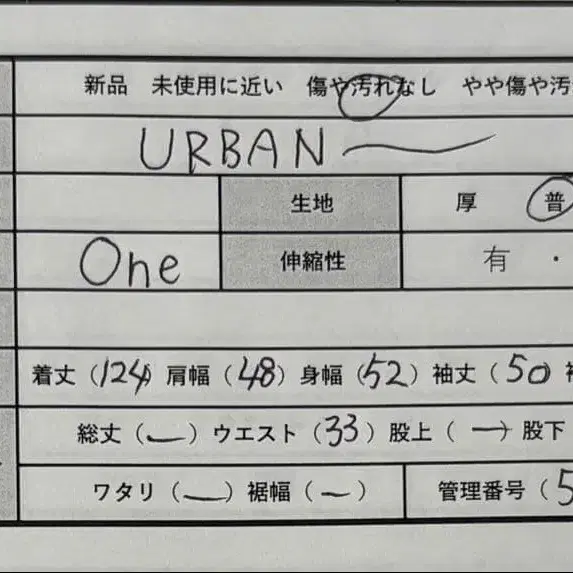 新品 未使用に近い 傷や汚れなし やや傷や汚
URBAN
生地 厚 普
One 伸縮性 有 ・
着丈（124）肩幅（48）身幅（52）袖丈（50
総丈（—）ウエスト（33）股上（—）股下
ワタリ（—）裾幅（—） 管理番号（5